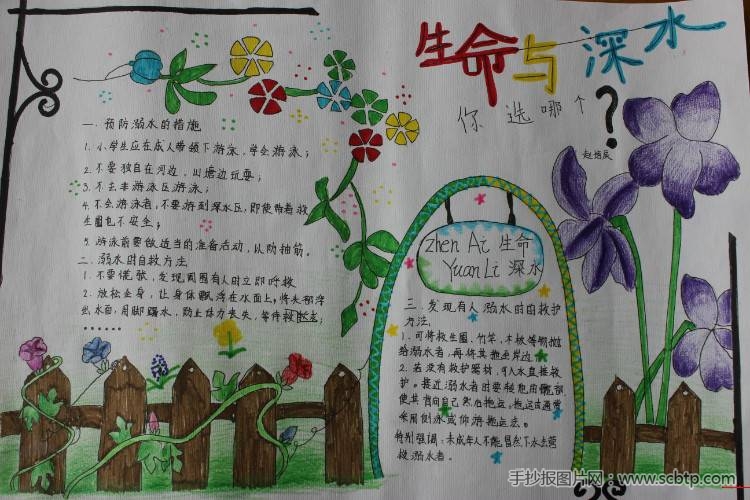 生命与深水
你选哪个?
一、预防溺水的措施
1. 小学生应在成人带领下游泳,学会游泳;
2. 不要独自在河边、山塘边玩耍;
3. 不去非游泳区游泳;
4. 不会游泳者,不要游到深水区,即使带着救
生圈也不安全;
5. 游泳前要做适当的准备活动,以防抽筋。
二、溺水时自救方法
1. 不要慌张,发现周围有人时立即呼救
2. 放松全身,让身体飘浮在水面上,将头部浮
出水面,用脚踢水,防止体力丧失,等待救
......
zhen Ai 生命
Yuan Li 深水
三、发现有人溺水时的救护
方法:
1. 可将救生圈、竹竿、木板等物抛
给溺水者,再将其拖至岸边;
2. 若没有救护器材,可入水直接救
护。接近溺水者时要
使其背向自己然后拖运,拖运时通常
采用侧泳或仰泳拖运法。
特别强调:未成年人不能冒然下水去营
救溺水者。
手抄报图片网:www.scbtp.com